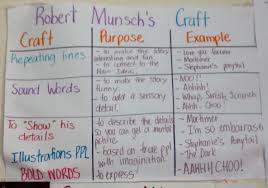 Robert Munsch's Craft
Craft
Purpose
Example
Repeating lines
- to make the story
interesting and fun
- to connect to the
Main Ideas
- Love you forever
- Mortimer
- Stephanie's Ponytail
Sound Words
- to make the story
funny.
- to add a sensory
detail.
- NOO!!
- Ahhhh!
- Whap, Swish, Scrunch
- AHHH - CHOO!
To "Show" his
details
Illustrations PPL
BOLD WORDS
to describe the details
so you can get a mental
picture
- based on true ppl
with imagination
to express
- Mortimer
- I'm so embarass
- Stephanie's Ponytail
- The Dark
- AAHHYCHOO!